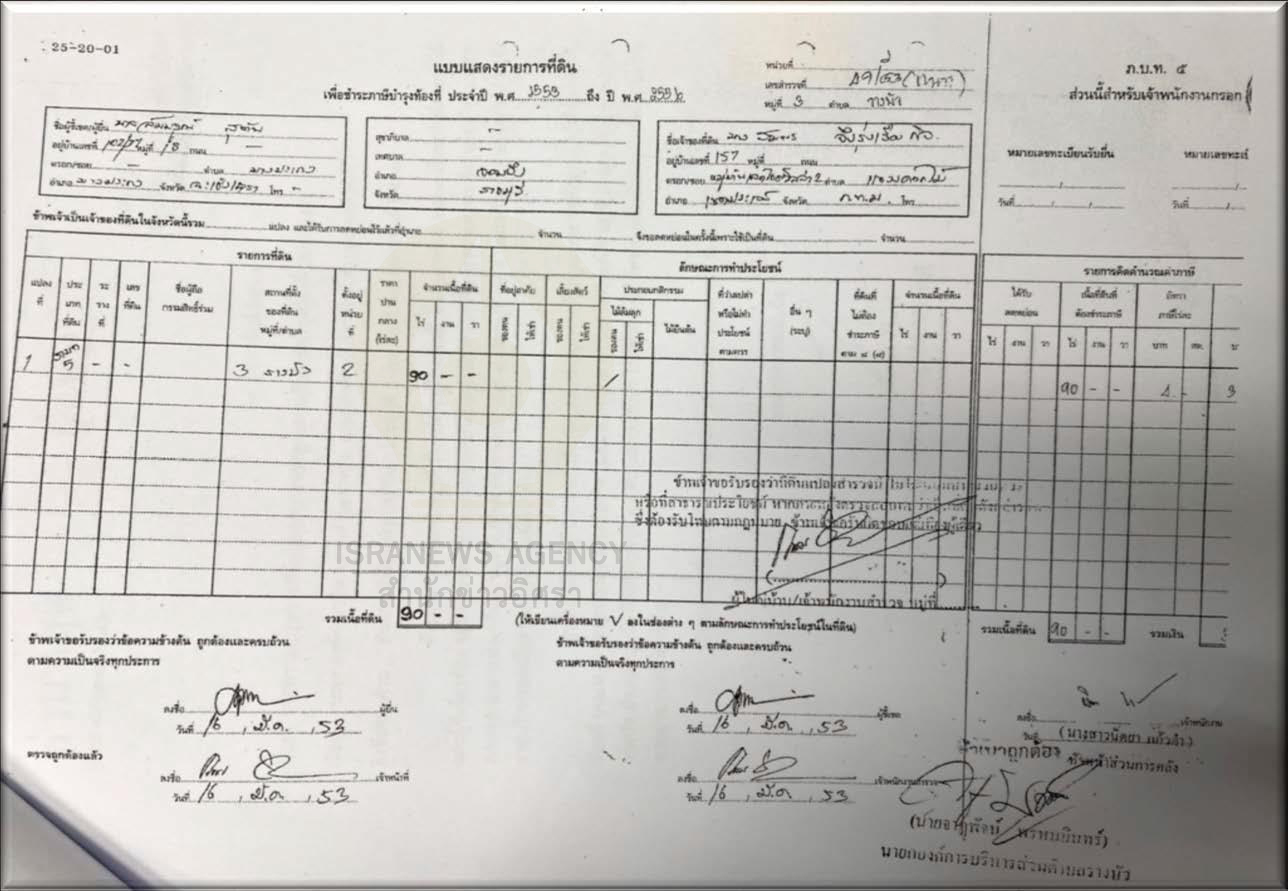 25-20-01
แบบแสดงรายการที่ดิน
เพื่อชำระภาษีบำรุงท้องที่ ประจำปี พ.ศ. 2553 ถึง ปี พ.ศ. 2556
หน่วยที่
เลขสำรวจที่
หมู่ที่ 3 ตำบล รางบัว
ภ.บ.ท. ๕
ส่วนนี้สำหรับเจ้าพนักงานกรอก
ชื่อผู้ชี้เขต/ผู้ยื่น
อยู่บ้านเลขที่ หมู่ที่ 8 ถนน -
ตรอก/ซอย - ตำบล บางปะกง
อำเภอ บางปะกง จังหวัด ฉะเชิงเทรา โทร -
สุขาภิบาล -
เทศบาล -
อำเภอ จอมบึง
จังหวัด ราชบุรี
ชื่อเจ้าของที่ดิน นาง
อยู่บ้านเลขที่ 157 หมู่ที่ ถนน
ตรอก/ซอย ตำบล แขวงดอกไม้
อำเภอ เขตประเวศ จังหวัด ก.ท.ม. โทร
หมายเลขทะเบียนรับยื่น
วันที่ / /
หมายเลขทะเบี
วันที่ / /
ข้าพเจ้าเป็นเจ้าของที่ดินในจังหวัดนี้รวม แปลง และได้รับการลดหย่อนไว้แล้วที่อำเภอ จำนวน จึงขอลดหย่อนในครั้งนี้เพราะใช้เป็นที่ดิน จำนวน
รายการที่ดิน
ลักษณะการทำประโยชน์
รายการคิดคำนวณค่าภาษี
แปลงที่
ประเภทที่ดิน
ระวางที่
เลขที่ดิน
ชื่อผู้ถือกรรมสิทธิ์ร่วม
สถานที่ตั้งของที่ดิน หมู่ที่/ตำบล
ตั้งอยู่หน่วยที่
ราคาปานกลาง (ไร่ละ)
จำนวนเนื้อที่ดิน
ไร่ งาน วา
ที่อยู่อาศัย
ของตน ให้เช่า
เลี้ยงสัตว์
ของตน ให้เช่า
ประกอบกสิกรรม
ไม้ล้มลุก
ของตน ให้เช่า
ไม้ยืนต้น
ที่ว่างเปล่าหรือไม่ทำประโยชน์ตามควร
อื่น ๆ (ระบุ)
ที่ดินที่ไม่ต้องชำระภาษี ตาม ๘ (๙)
จำนวนเนื้อที่ดิน
ไร่ งาน วา
ได้รับลดหย่อน
ไร่ งาน วา
เนื้อที่ดินที่ต้องชำระภาษี
ไร่ งาน วา
อัตราภาษีไร่ละ
บาท สต.
1 ภบท 5 - - 3 รางบัว 2 90 - - / 90 - - 4 - 3
ข้าพเจ้าขอรับรองว่าที่ดินแปลงสำรวจนี้
หรือที่สาธารณประโยชน์
ซึ่งต้องรับโทษตามกฎหมาย ข้าพเจ้าขอรับผิดชอบแต่เพียงผู้เดียว
ISRANEWS AGENCY
สำนักข่าวอิศรา
(....................)
ผู้ใหญ่บ้าน/เจ้าพนักงานสำรวจ หมู่ที่
รวมเนื้อที่ดิน 90 - - (ให้เขียนเครื่องหมาย √ ลงในช่องต่าง ๆ ตามลักษณะการทำประโยชน์ในที่ดิน) รวมเนื้อที่ดิน 90 - - รวมเงิน
ข้าพเจ้าขอรับรองว่าข้อความข้างต้น ถูกต้องและครบถ้วน
ตามความเป็นจริงทุกประการ
ข้าพเจ้าขอรับรองว่าข้อความข้างต้น ถูกต้องและครบถ้วน
ตามความเป็นจริงทุกประการ
ลงชื่อ ผู้ยื่น
วันที่ 16 , มี.ค. , 53
ลงชื่อ ผู้ชี้เขต
วันที่ 16 , มี.ค. , 53
ลงชื่อ เจ้าพนักงาน
วันที่
หัวหน้าส่วนการคลัง
ตรวจถูกต้องแล้ว
ลงชื่อ เจ้าหน้าที่
วันที่ 16 , มี.ค. , 53
ลงชื่อ เจ้าพนักงานสำรวจ
วันที่ 16 , มี.ค. , 53
สำเนาถูกต้อง
นายกองค์การบริหารส่วนตำบลรางบัว